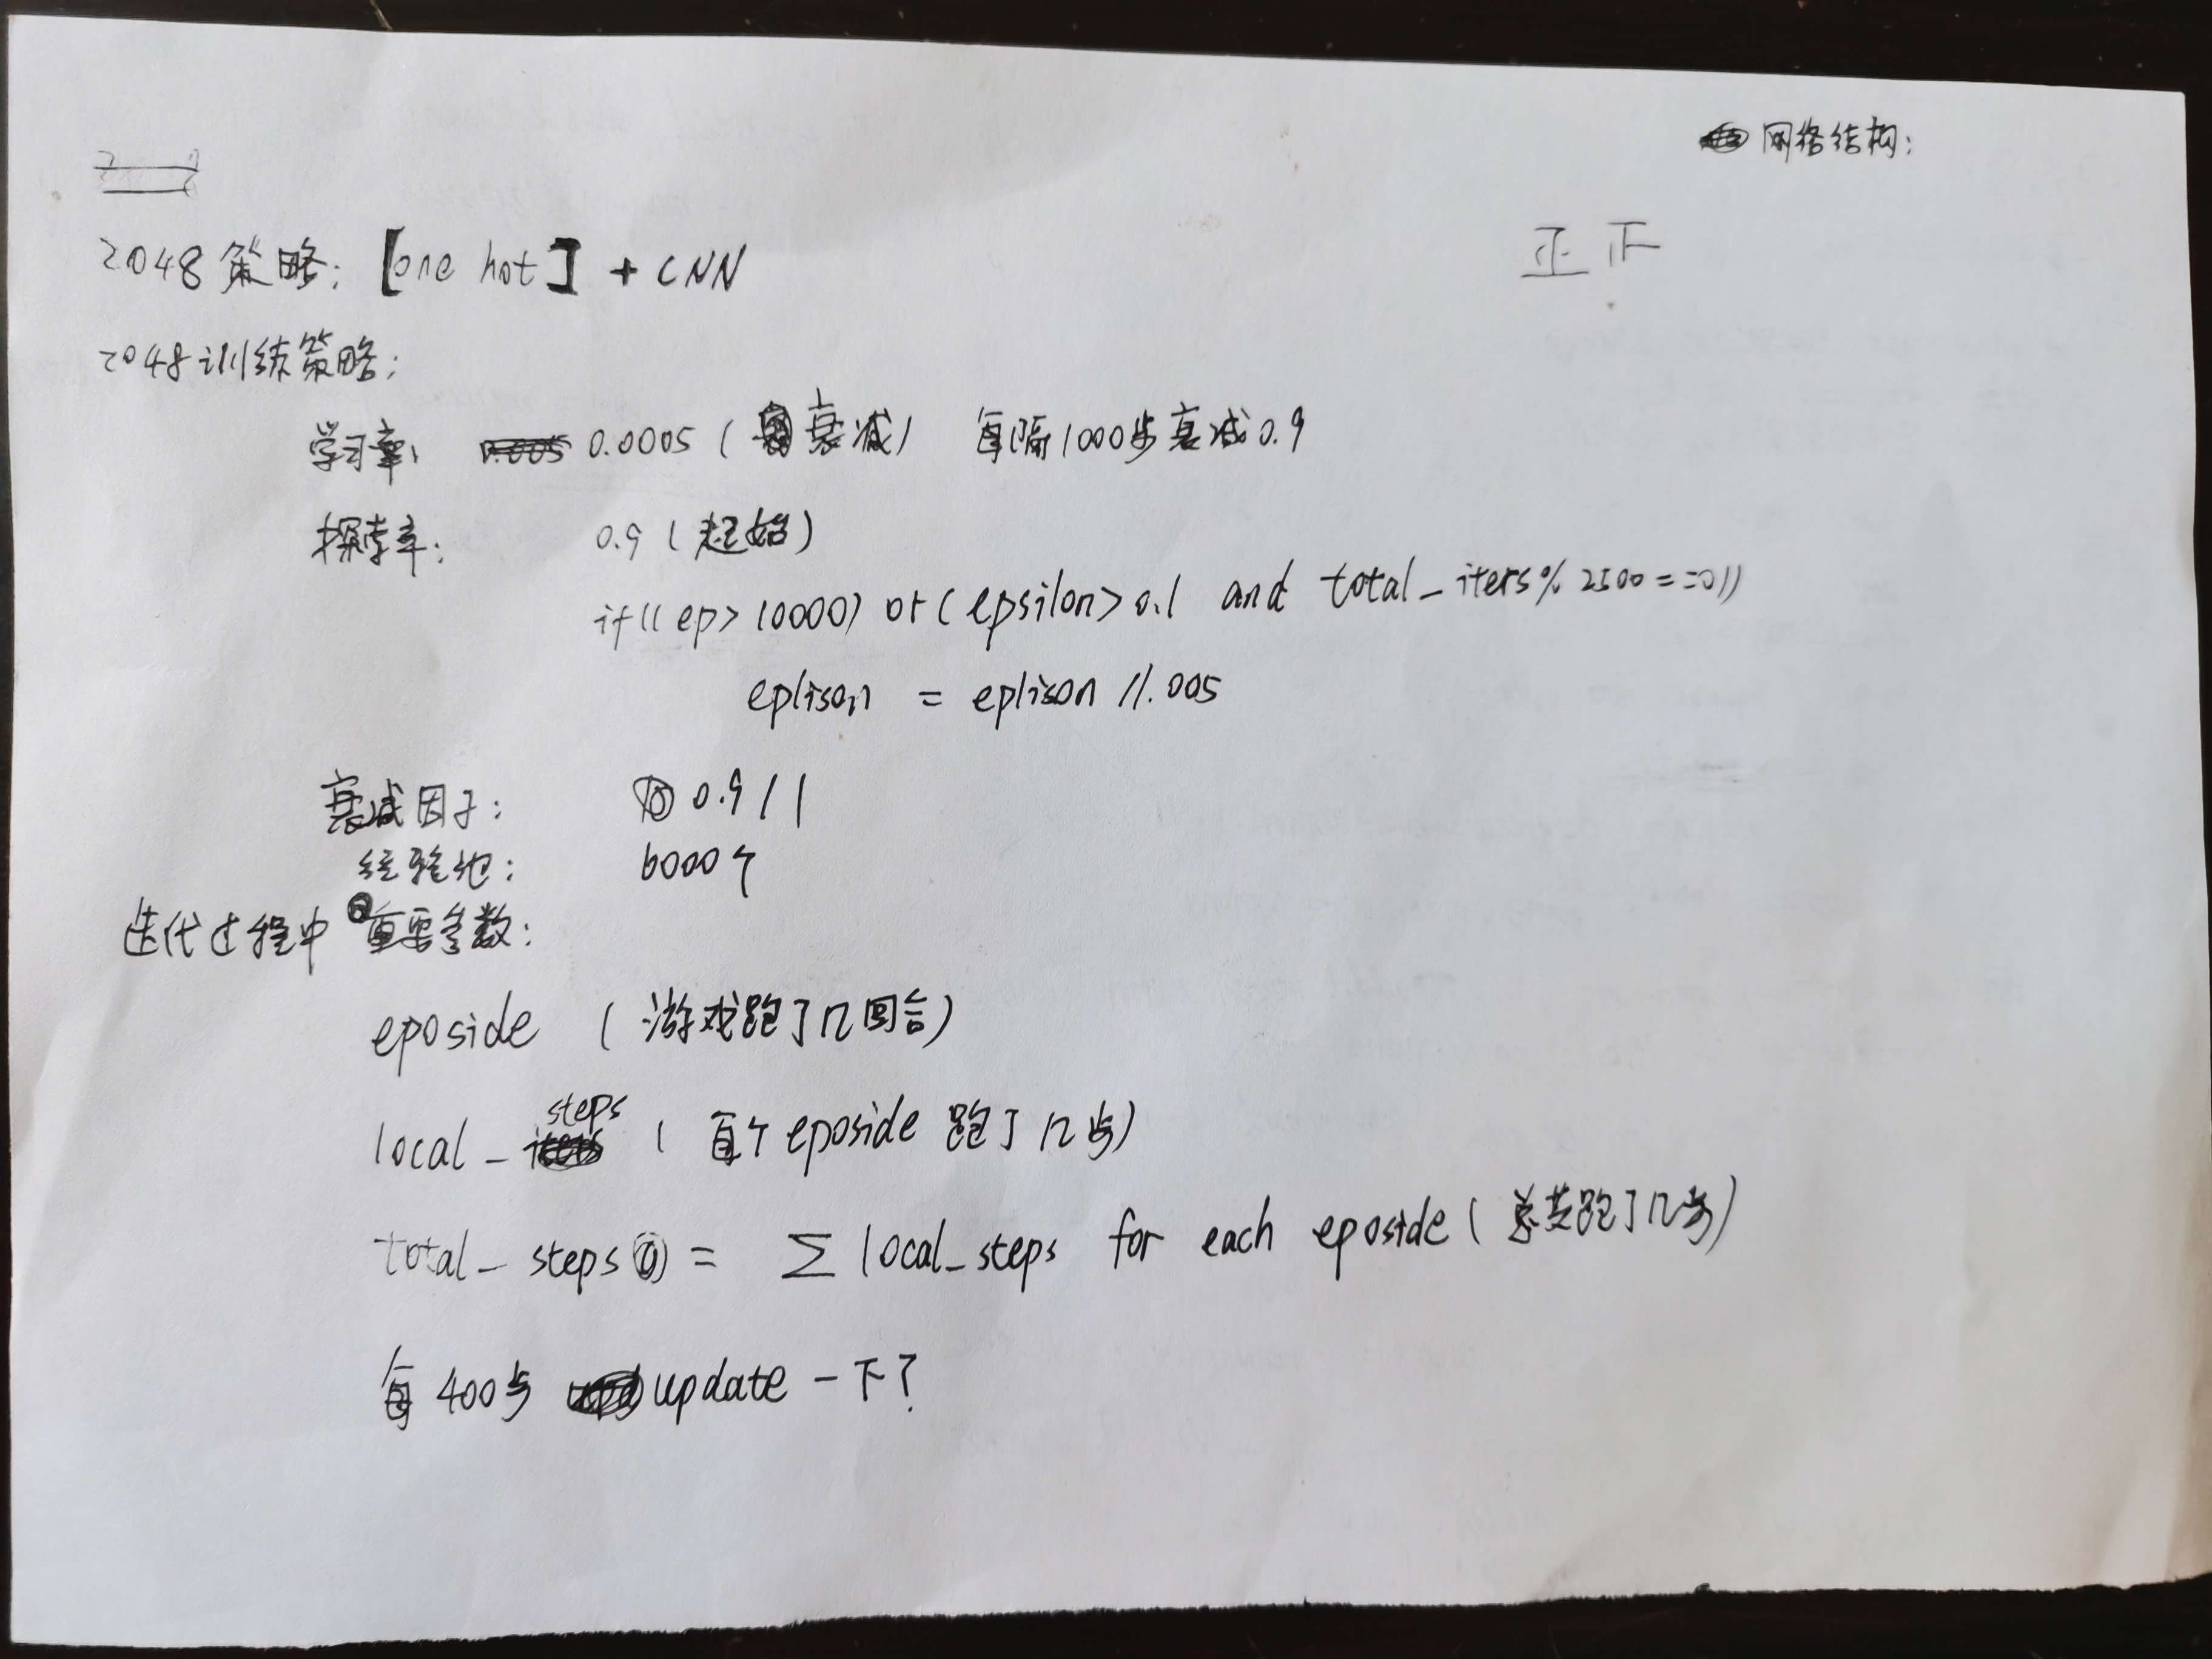 网络结构:
正正
2048 策略: [one hot] + CNN
2048 训练策略:
学习率: 0.0005 (衰减) 每隔1000步衰减0.9
探索率: 0.9 (起始)
if((ep>10000) or (epsilon>0.1 and total_iters%2500==0))
eplison = eplison /1.005
衰减因子: 0.9 / 1
经验池: 6000个
迭代过程中重要参数:
eposide (游戏跑了几回合)
local_steps (每个eposide 跑了几步)
total_steps = ∑ local_steps for each eposide (总共跑了几步)
每400步 update 一下?